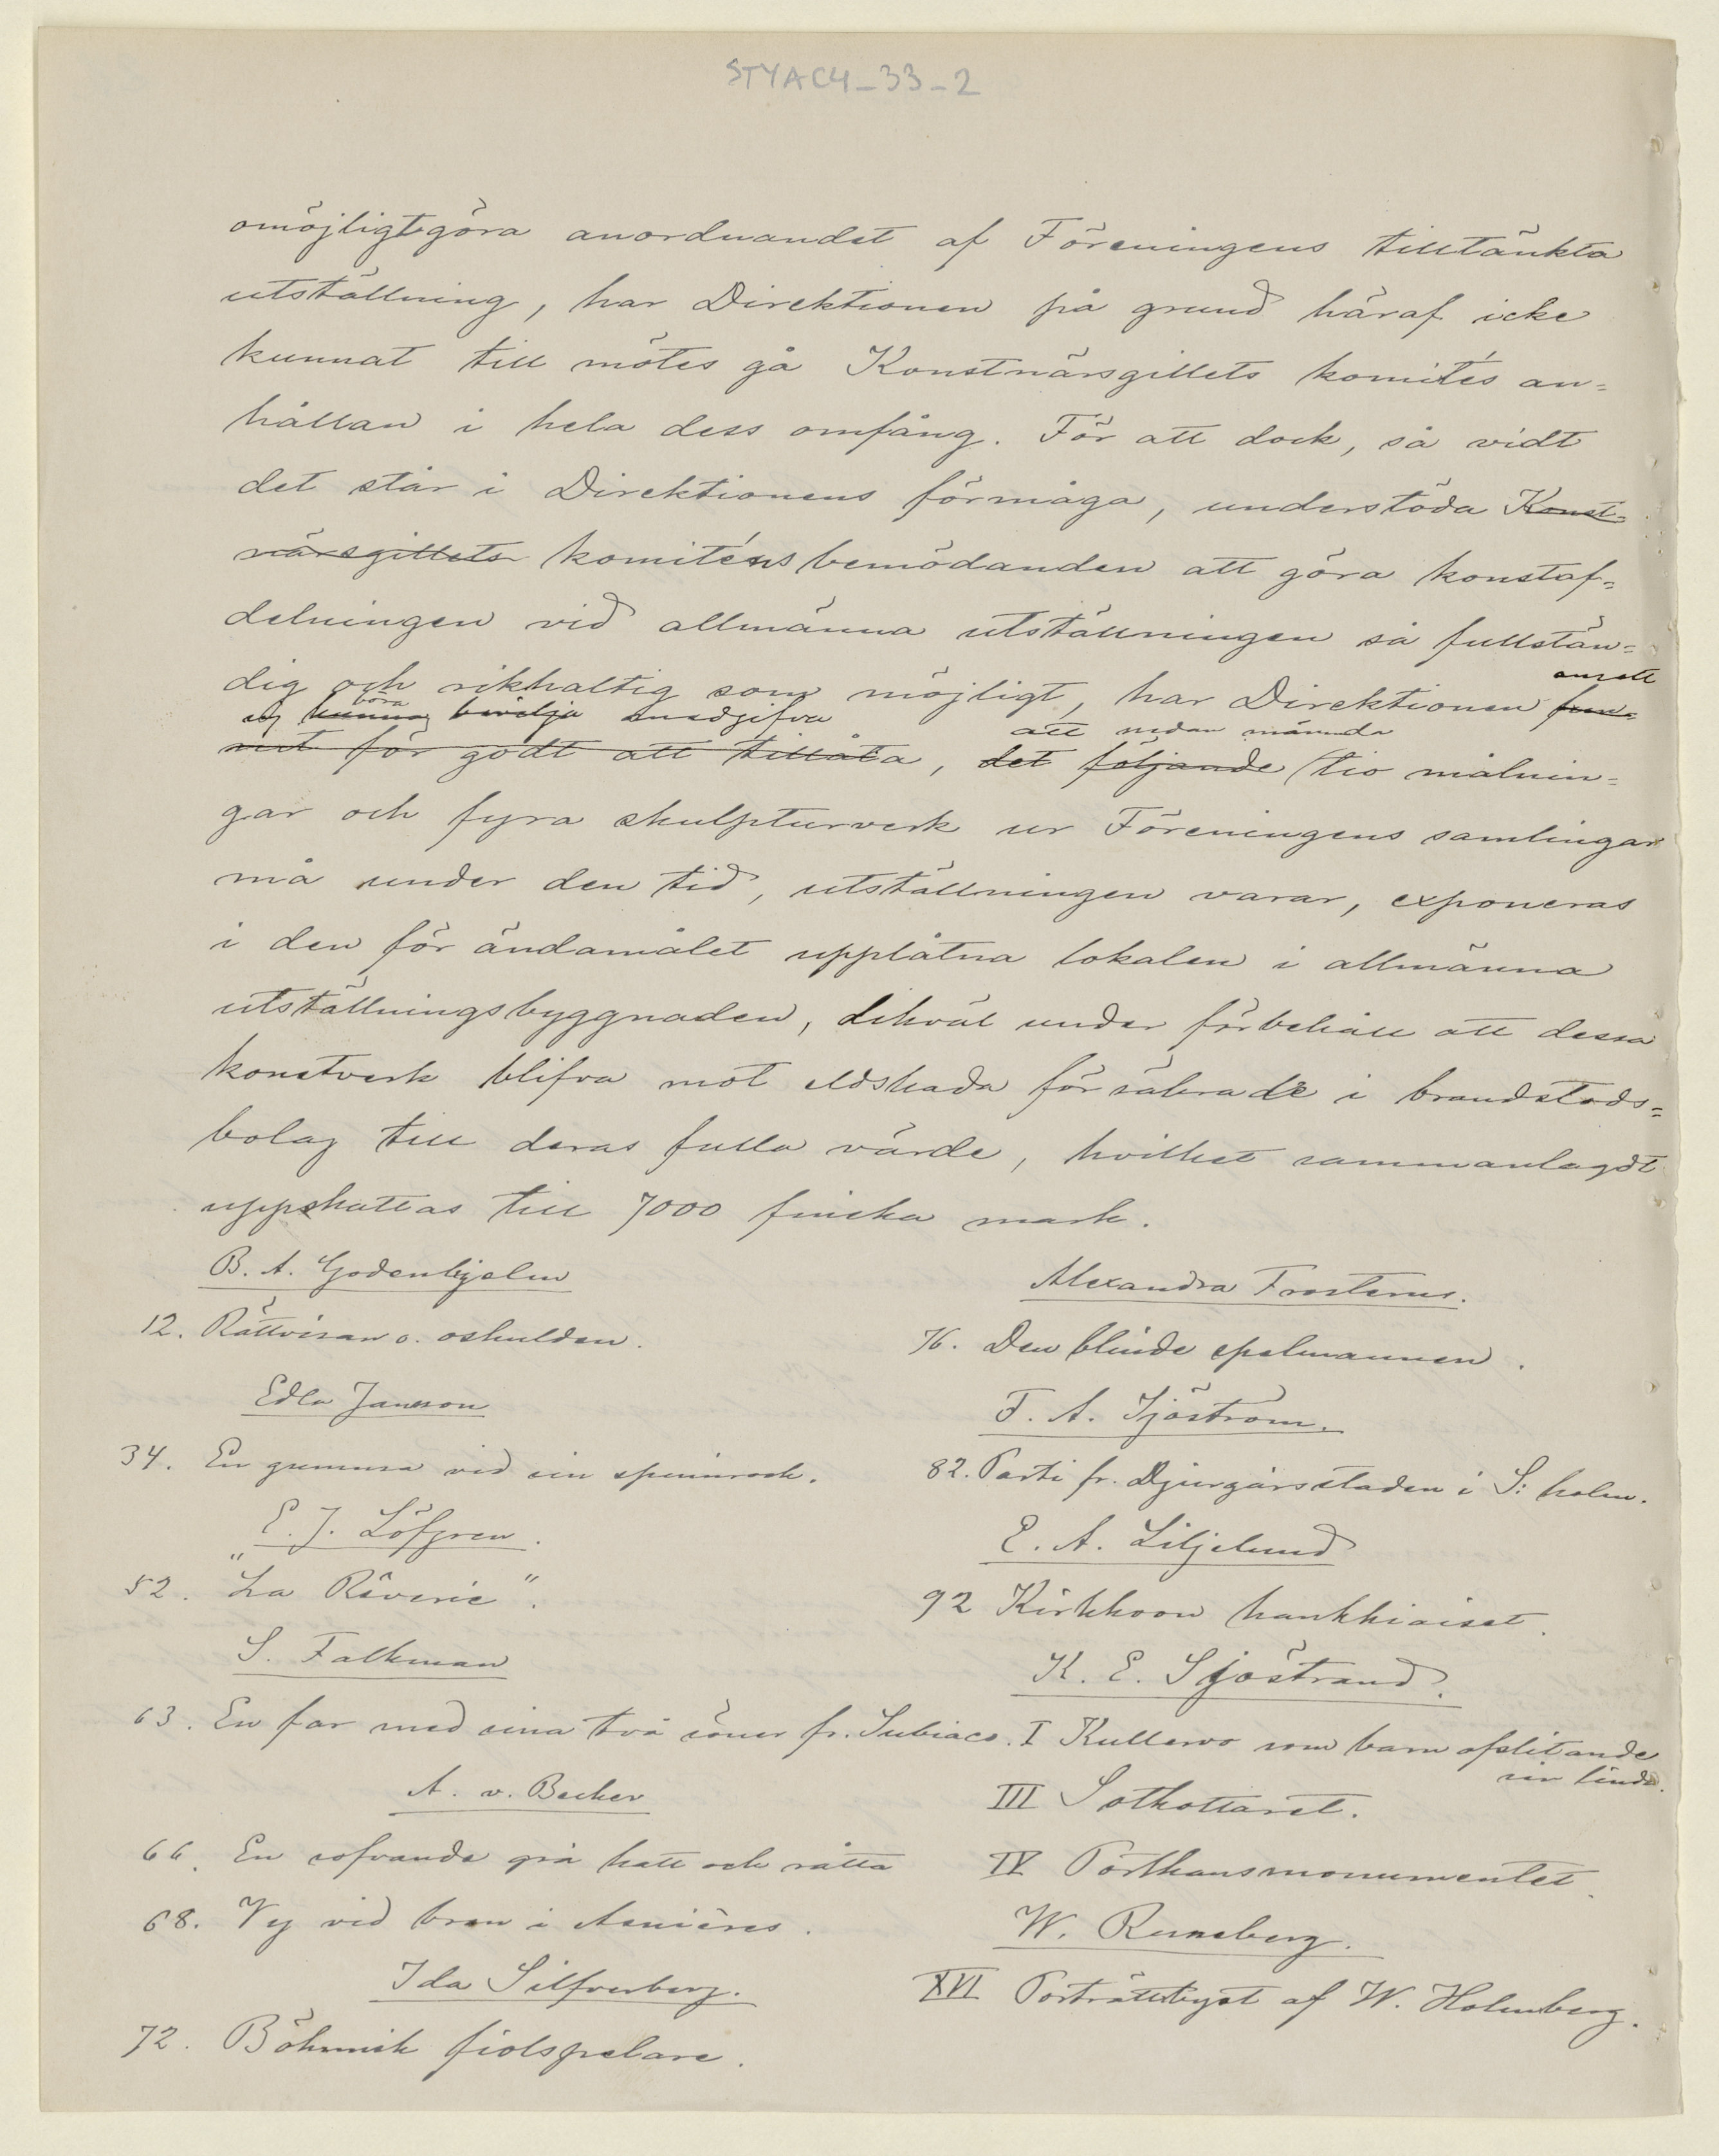 STYAC4_33_2
omöjligtgöra anordnandet af Föreningens tilltänkta
utställning, har Direktionen på grund häraf icke
kunnat till mötes gå Konstnärsgillets komités an=
hållan i hela dess omfång. För att dock, så vidt
det står i Direktionens förmåga, understöda Konst=
närsgillets komiténs bemödanden att göra konstaf=
delningen vid allmänna utställningen så fullstän=
dig och rikhaltig som möjligt, har Direktionen fun=
ansett
sig kunna böra bevilja medgifva
att nedan nämnda
nit för godt att tillåta, det följande tio målnin=
gar och fyra skulpturverk ur Föreningens samlingar
må under den tid, utställningen varar, exponeras
i den för ändamålet upplåtna lokalen i allmänna
utställningsbyggnaden, likväl under förbehåll att dessa
konstverk blifva mot eldskada försäkrade i brandstods=
bolag till deras fulla värde, hvilket sammanlagdt
uppskattas till 7000 finska mark.
B. A. Godenhjelm
12. Rättvisan o. oskulden.
Edla Jansson
34. En gumma vid sin spinnrock.
E. J. Löfgren.
52. "La Rêverie".
S. Falkman
63. En far med sina två söner fr. Subiaco.
A. v. Becker
66. En sofvande grå katt och råtta
68. Vy vid bron i Asnières.
Ida Silfverberg.
72. Böhmisk fiolspelare.
Alexandra Frosterus.
76. Den blinde spelmannen.
F. A. Sjöström.
82. Parti fr. Djurgårsstaden i S:holm.
E. A. Liljelund
92 Kirkkoon hankkiaiset.
K. E. Sjöstrand.
I Kullervo som barn afslitande
sin linda.
III Sotkottaret.
IV Porthansmonumentet.
W. Runeberg.
XVI Porträttbyst af W. Holmberg.